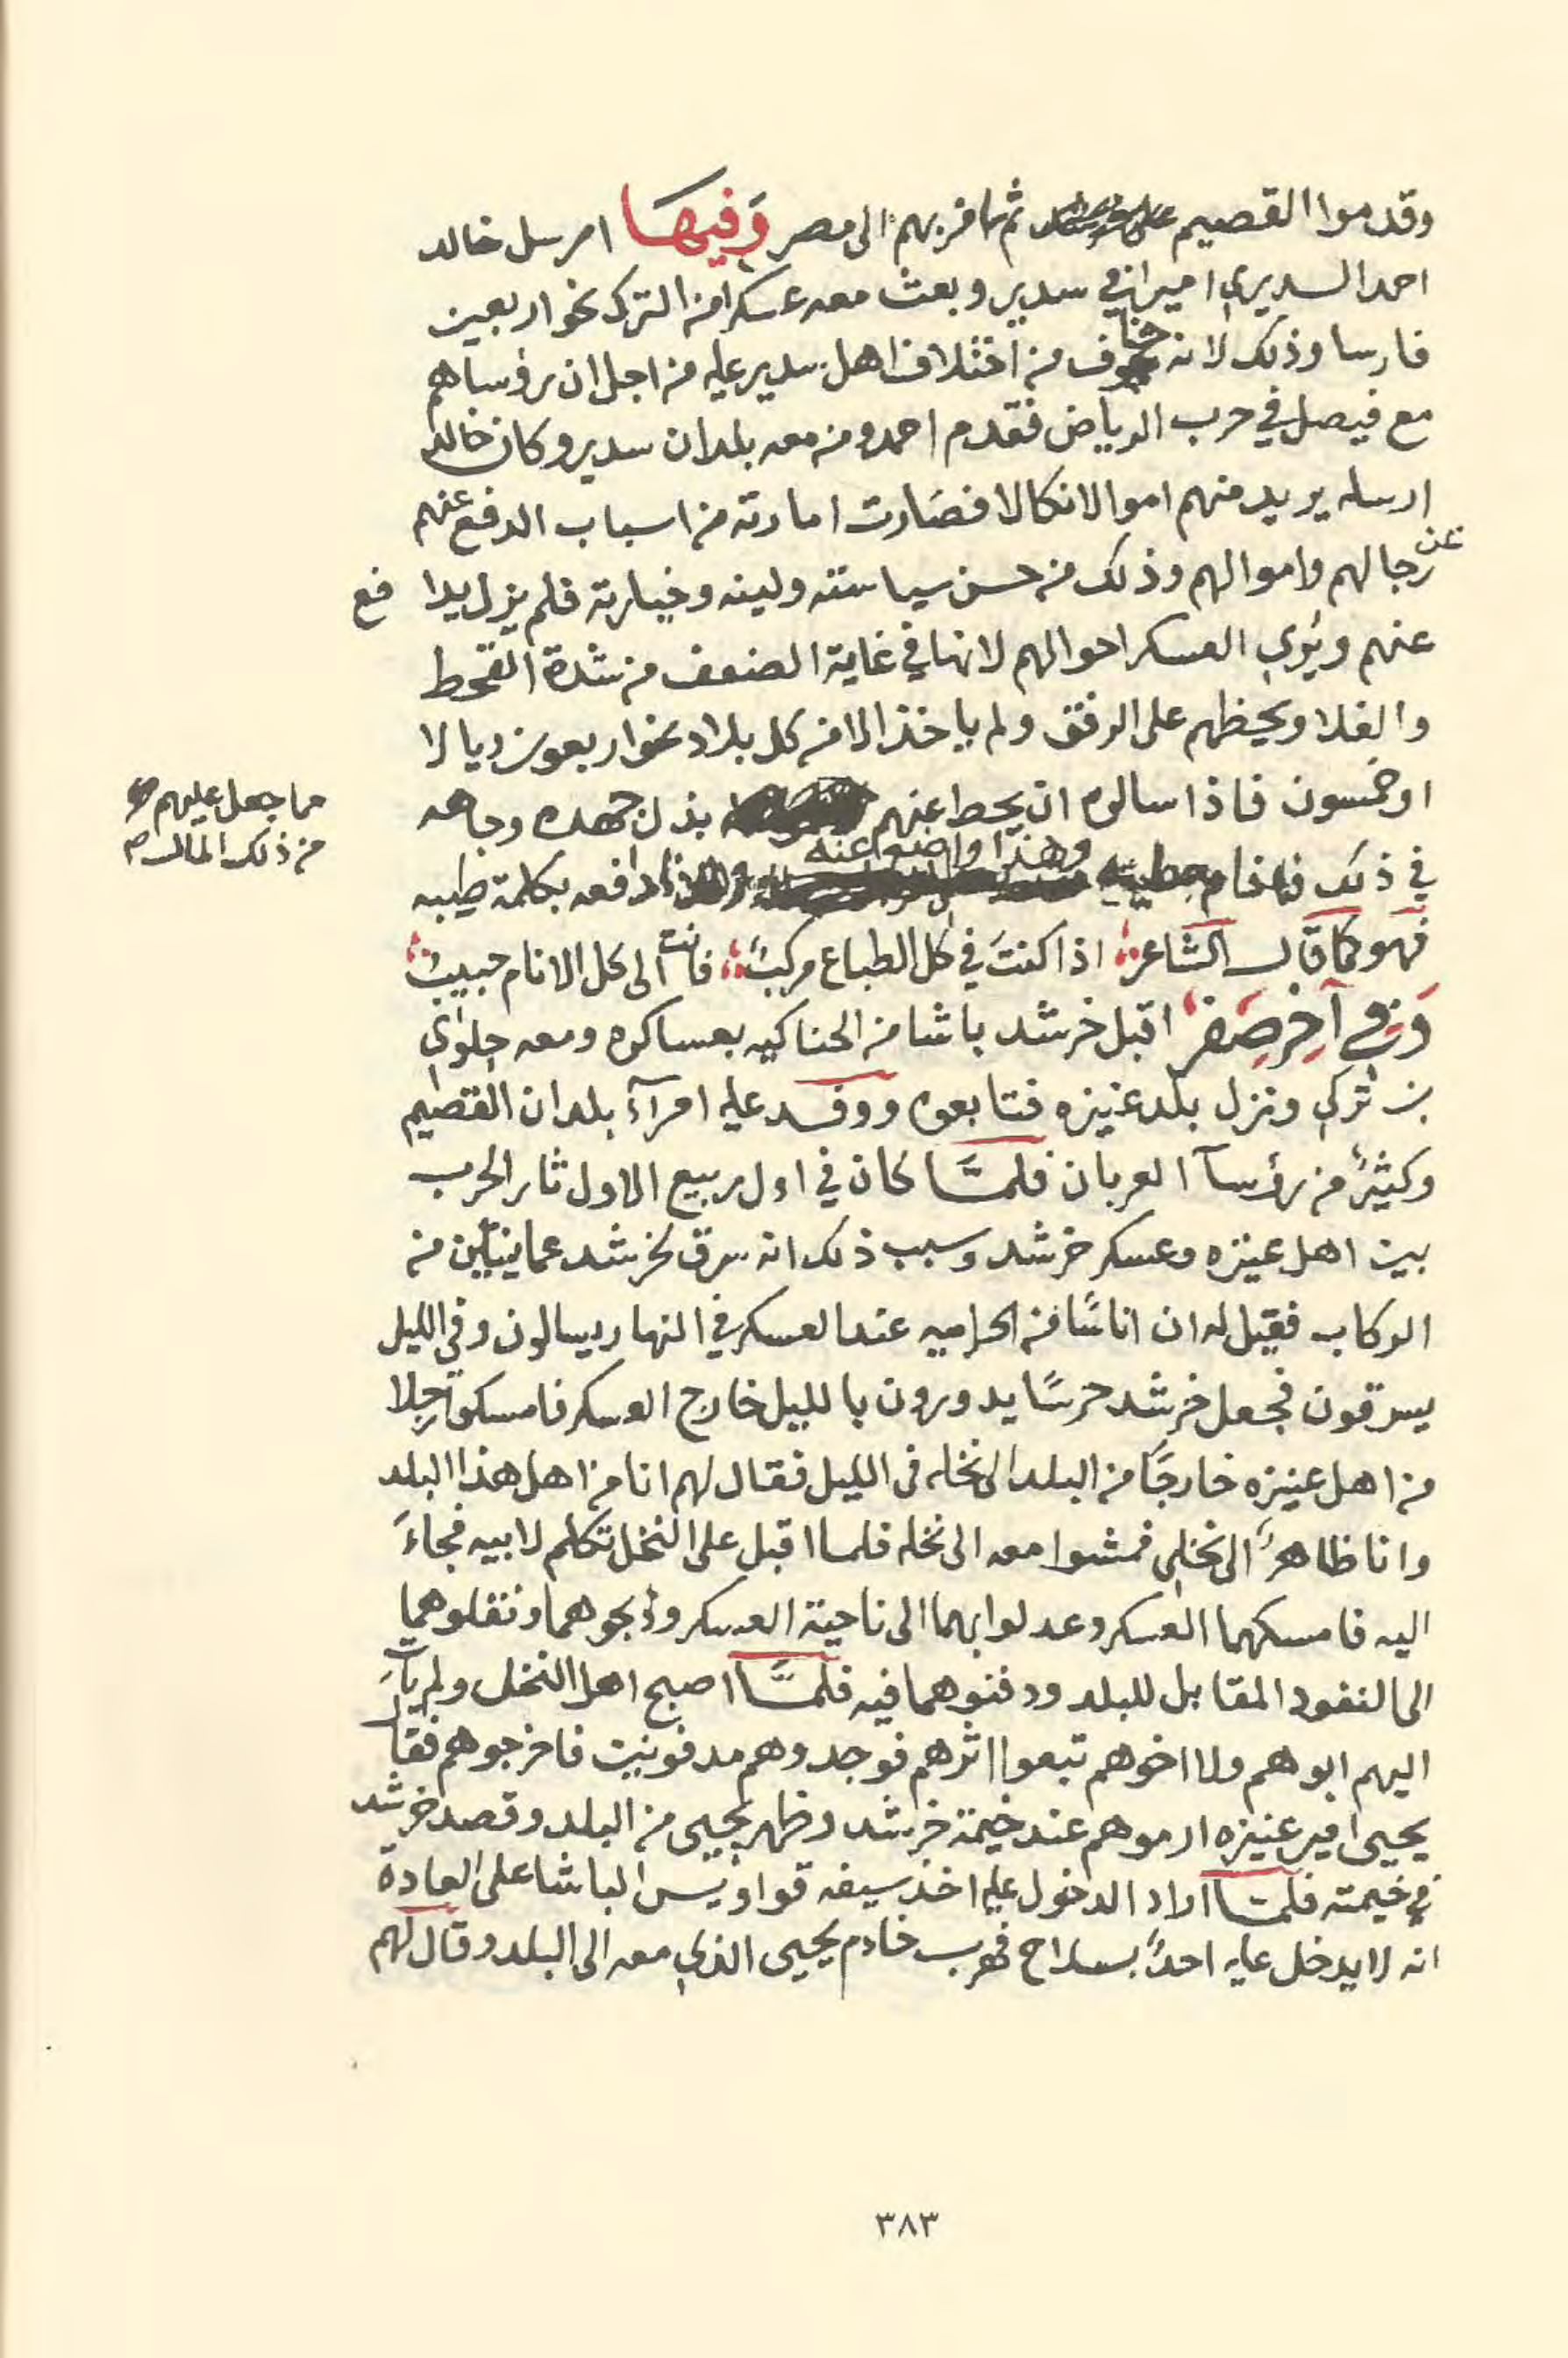 وقدموا القصيم ثم سافر بهم الى مصر وَفيهَا ارسل خالد
احمد السديري اميرا في سدير وبعث معه عسكرا من الترك نحو اربعين
فارسا وذلك لانه خاف من اختلاف اهل سدير عليه من اجل ان رؤساهم
مع فيصل في حرب الرياض فقدم احمد ومن معه بلدان سدير وكان خالد
ارسله يريد منهم اموالا نكالا فصَارت امارته من اسباب الدفع عنهم
عن رجالهم واموالهم وذلك من حسن سياسته ولينه وخيارته فلم يزل يدا فع
عنهم ويُوري العسكر احوالهم لانها في غاية الضعف من شدة القحوط
والغلا ويحيظهم على الرفق ولم ياخذ الا من كل بلاد نحو اربعون ريالا
او خمسون فاذا سالوه ان يحط عنهم بذل جهده وجاهه
مما جعل عليهم
من ذلك المال
في ذلك وهذا واضع عنه دافعه بكلمة طيبه
فهو كما قال الشاعر اذا كنتَ في كل الطباع مركبٌ فانت الى كل الانام حبيبٌ
وَفي آخِر صَفر اقبل خرشد باشا من الحناكيه بعساكره ومعه جلوي
بن تركي ونزل بلد عنيزه فتابعوه ووفد عليه امرآء بلدان القصيم
وكثيرٌ من رؤسآ العربان فلمَّا كان في اول ربيع الاول ثار الحرب
بين اهل عنيزه وعسكر خرشد وسبب ذلك انه سرق لخرشد عمانيتين من
الركاب فقيل له ان اناسًا من الحراميه عند العسكر في النهار يسالون وفي الليل
يسرقون فجعل خرشد حرسًا يدورون بالليل خارج العسكر فامسكوا رجلا
من اهل عنيزه خارجًا من البلد الى نخله في الليل فقال لهم انا من اهل هذا البلد
وانا ظاهرٌ الى نخلي فمشوا معه الى نخله فلما اقبل على النخل تكلم لابيه فجاءَ
اليه فامسكهما العسكر وعدلوا بهما الى ناحية العسكر وذبحوهما ونقلوهما
الى النفود المقابل للبلد ودفنوهما فيه فلمَّا اصبح اهل النخل ولم يأت
اليهم ابوهم ولا اخوهم تبعوا اثرهم فوجدوهم مدفونين فاخرجوهم فقال
يحيى امير عنيزه ارموهم عند خيمة خرشد وظهر يحيى من البلد وقصد خرشد
في خيمته فلما اراد الدخول عليه اخذ سيفه قواويس الباشا على العادة
انه لا يدخل عليه احدٌ بسلاح فهرب خادم يحيى الذي معه الى البلد وقال لهم
٣٨٣